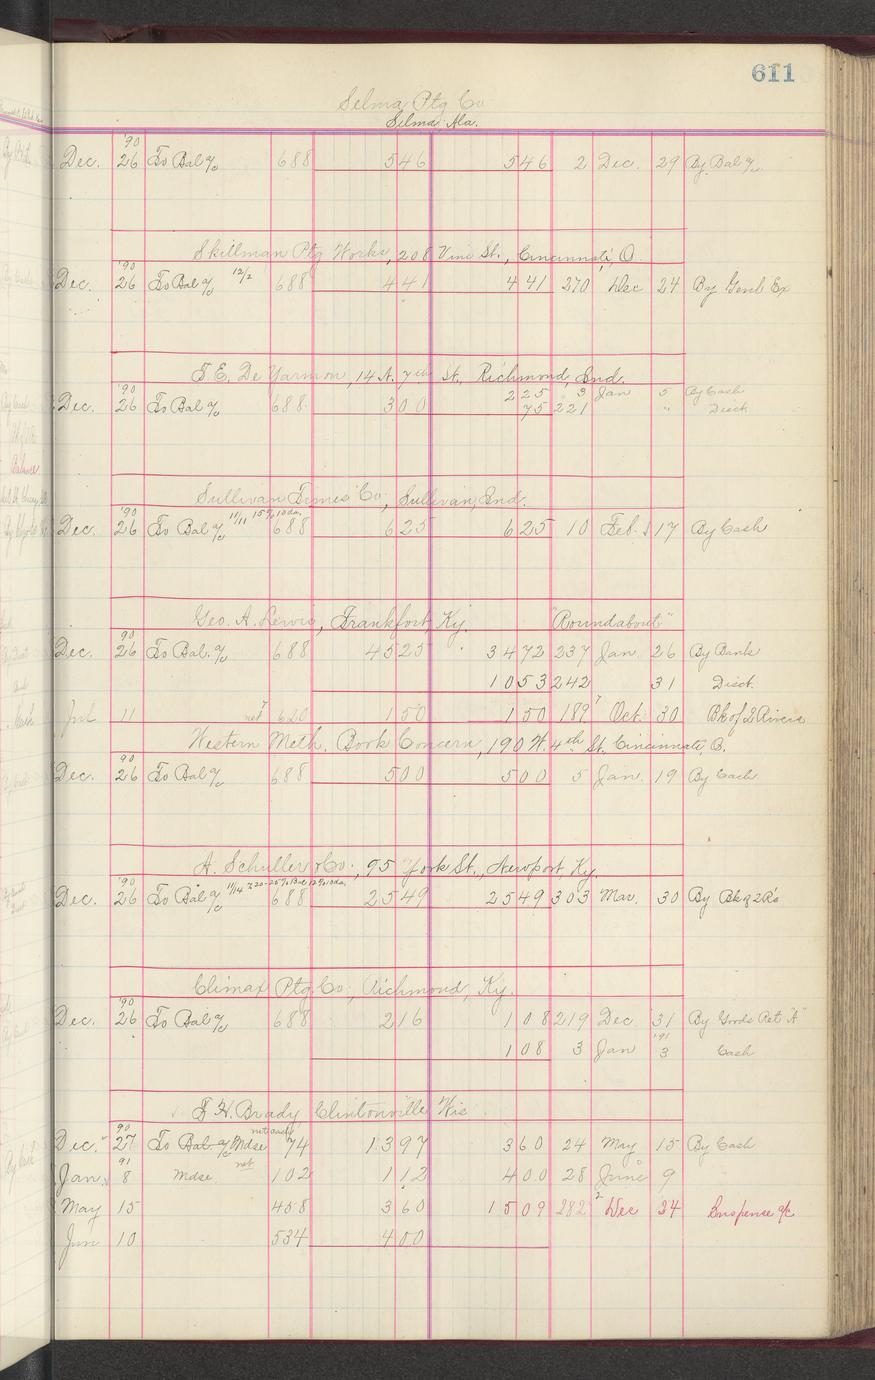 611
Selma Ptg Co
Selma Ala.
'90
Dec. 26 To Bal a/c 688 546 546 2 Dec. 29 By Bal a/c
Skillman Ptg Works, 208 Vine St., Cincinnati, O.
'90
Dec. 26 To Bal a/c 12/2 688 441 441 270 Dec 24 By Genl Ex
T. E. De Yarmon, 14 N. 7th St., Richmond, Ind.
'90 225 3 Jan 5 By Cash
Dec. 26 To Bal a/c 688 300 75 221 " Disct
Sullivan Times Co, Sullivan, Ind.
'90 11/11 15% 10 da.
Dec. 26 To Bal a/c 688 625 625 10 Feb. 17 By Cash
Geo. A. Lewis, Frankfort, Ky. "Roundabout"
90
Dec. 26 To Bal. a/c 688 4525 3472 237 Jan. 26 By Bank
1053 242 31 Disct.
11 net 7 620 150 150 189 7 Oct. 30 Bk of 2 Rivers
Western Meth. Book Concern, 190 W. 4th St. Cincinnati, O.
90
Dec. 26 To Bal a/c 688 500 500 5 Jan. 19 By Cash
A. Schuller & Co., 95 York St., Newport Ky.
'90 11/14
Dec. 26 To Bal a/c 688 2549 2549 303 Mar. 30 By Bkg 2R's
Climax Ptg. Co, Richmond, Ky.
'90
Dec. 26 To Bal a/c 688 216 108 219 Dec 31 By Goods Ret "A"
108 3 Jan '91 3 Cash
F. H. Brady Clintonville Wis
90 net cash
Dec. 27 To Bal. a/c Mdse 74 1397 360 24 May 15 By Cash
91 net
Jan. 8 Mdse 102 112 400 28 June 9
May 15 458 360 1509 282 2 Dec 24 Suspense a/c
Jun 10 534 400